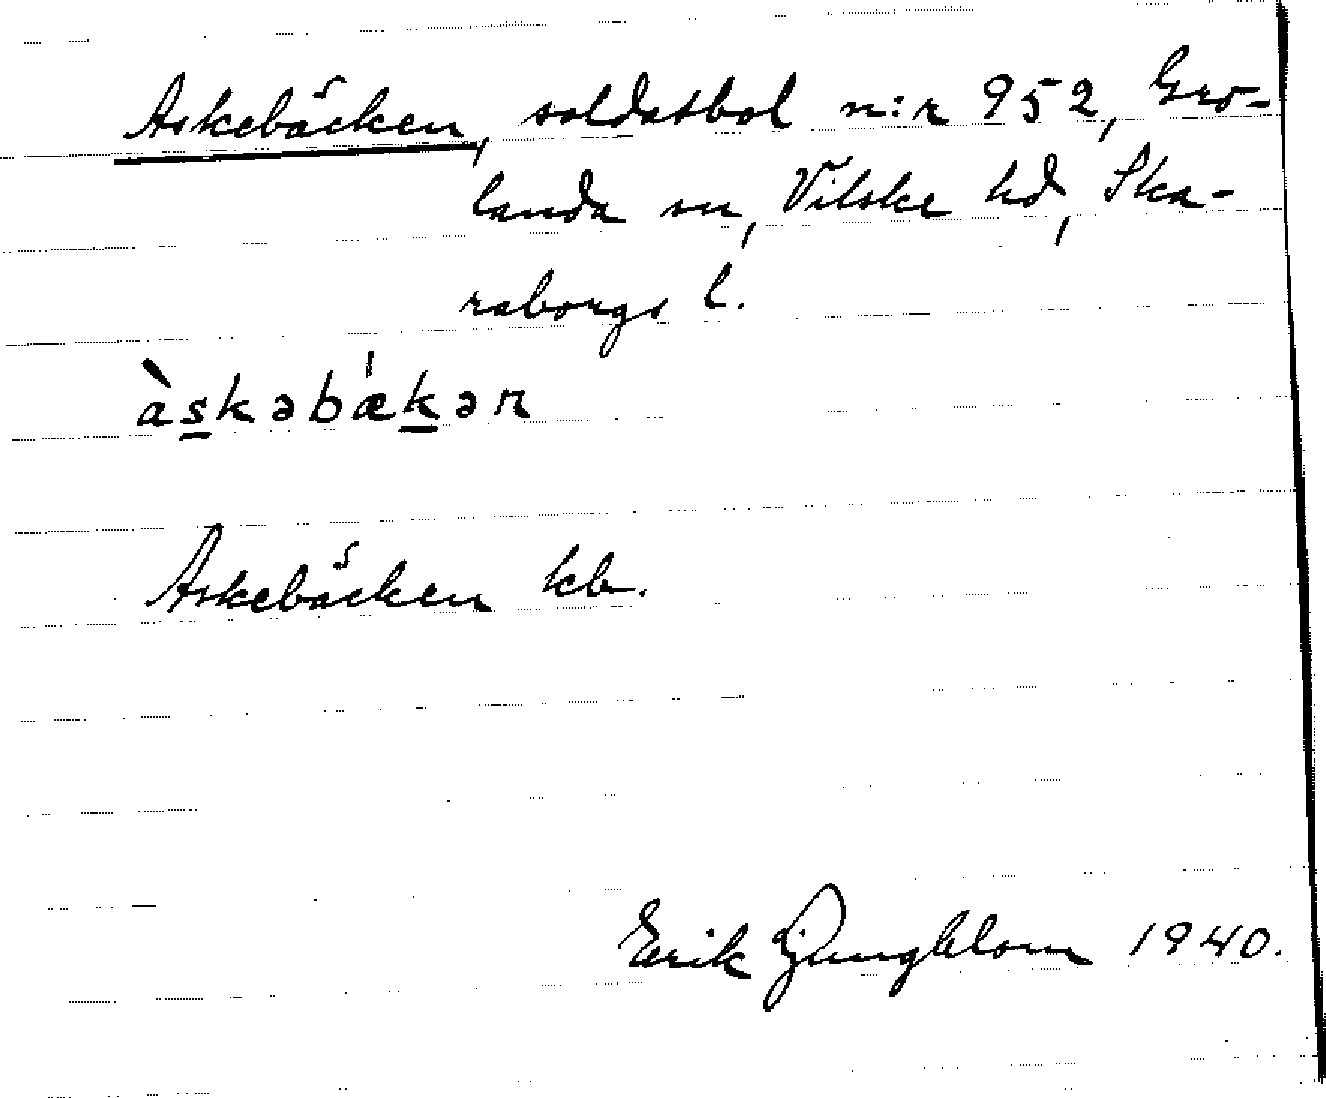 Askebäcken, soldatbol n:r 952, Gro-
landa sn, Vilske hd, Ska-
raborgs l.
àskəbǽkən
Askebäcken kb.
Erik Ljungblom 1940.